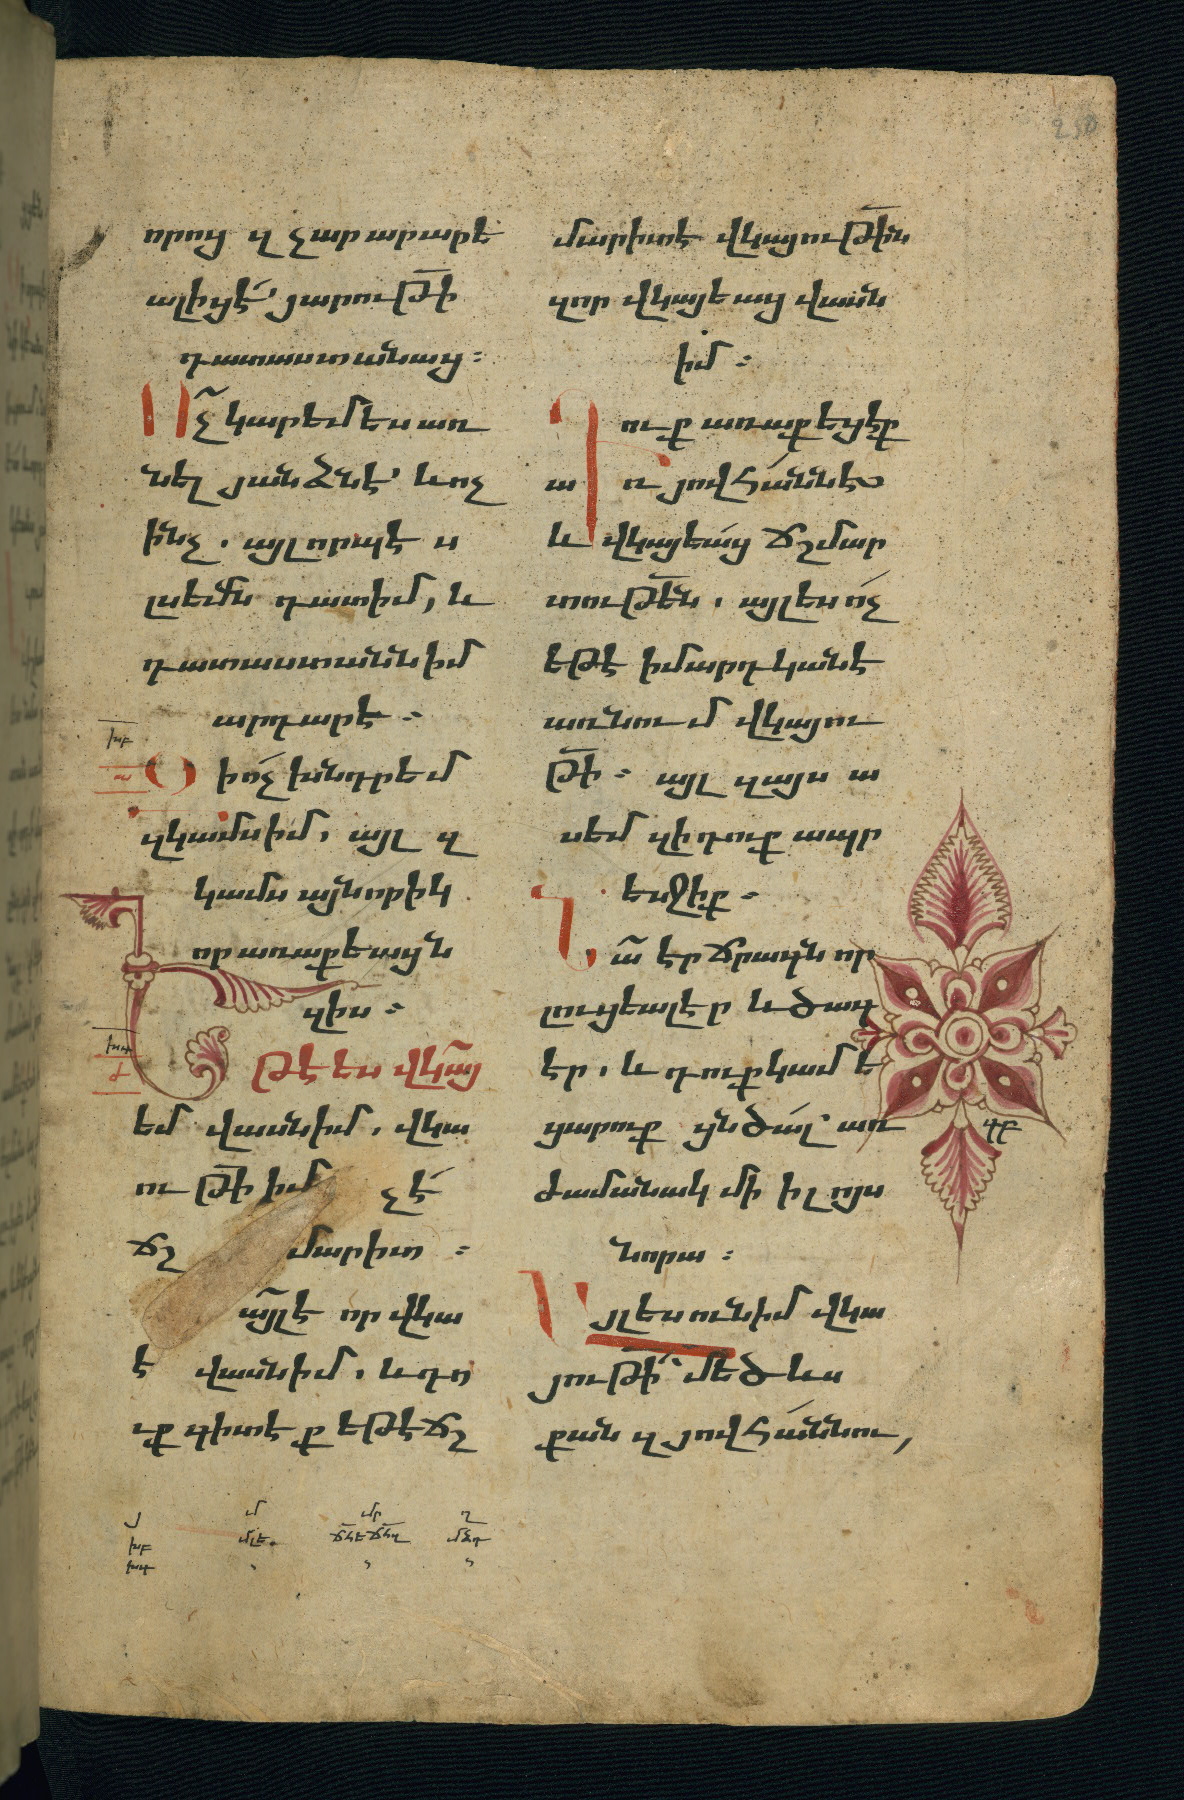 որոց զչար արարե
ալիցէ՝ յարութի̄
դատաստանաց։
Ոչ̃ կարեմ ես առ
նել յանձնէ՝ և ոչ
ինչ. այլ որպէս
լսեմն դատիմ, և
դատաստանն իմ
արդար է։
Զի ո՛չ խնդրեմ
զկամս իմ, այլ զ
կամս այնորիկ
որ առաքեացն
զիս։
Եթէ ես վկայ
եմ վասն իմ, վկա
ութի̄ իմ չէ՛
ճշմարիտ։
այլ է որ վկա
է վասն իմ, և դո
ւք գիտէք եթէ ճշ
մարիտ է վկայութի̄ն
զոր վկայեաց վասն
իմ։
Դուք առաքեցէք
առ յովհաննէս
և վկայեաց ճշմար
տութե̄ն. այլ ես ո՛չ
եթէ ի մարդկանէ
առնում վկայու
թի̄։ այլ զայս ա
սեմ զի դուք ապր
եսջիք։
Նա̃ էր ճրագն որ
լուցեալ էր և ծագ
էր, և դուք կամե
ցարուք ցնծալ առ
ժամանակ մի ի լոյս
նորա։
Այլ ես ունիմ վկա
յութի̄ մեծ ևս
քան զյովհաննու,